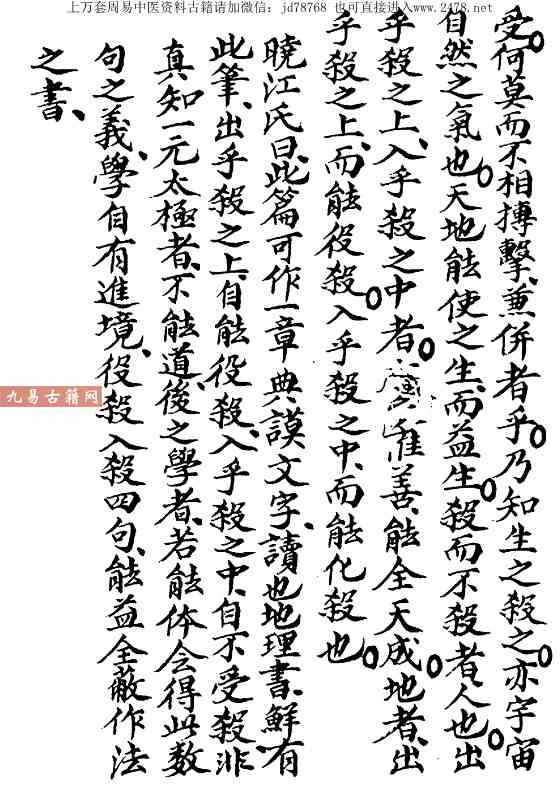 上万套周易中医资料古籍请加微信：jd78768 也可直接进入www.2478.net
受。何莫而不相搏擊、兼併者乎。乃知生之殺之。亦宇宙
自然之氣也。天地能使之生、而益生。殺而不殺者、人也。出
乎殺之上、入乎殺之中者。惟善、能全天成地者、出
乎殺之上、而能役殺。入乎殺之中、而能化殺也。
曉江氏曰、此篇可作一章典謨文字、讀也地理書、鮮有
此筆、出乎殺之上、自能役殺、入乎殺之中、自不受殺、非
真知一元太極者、不能道、後之學者、若能体会得此数
句之義、學自有進境、役殺入殺四句、能益全蔽作法
之書、
九易古籍网